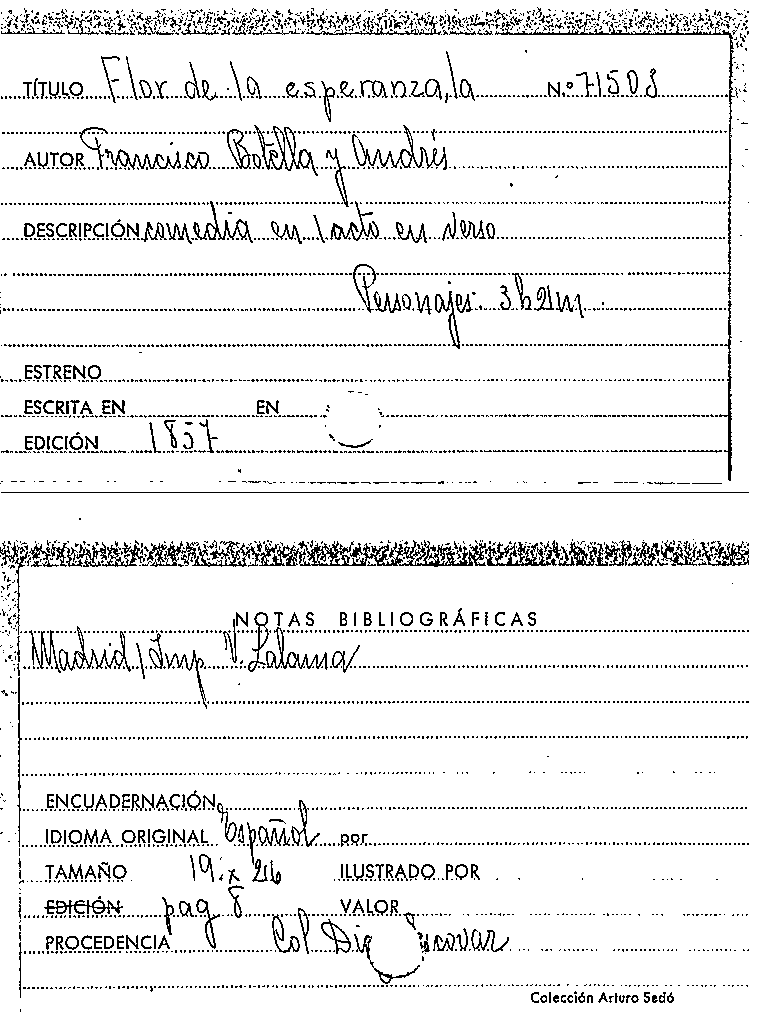 TÍTULO Flor de la esperanza, la N.º 71508
AUTOR Francisco Botella y Andrés
DESCRIPCIÓN comedia en 1 acto en verso
Personajes: 3h 2m.
ESTRENO
ESCRITA EN EN
EDICIÓN 1857
NOTAS BIBLIOGRÁFICAS
Madrid / Imp V. Lalama
ENCUADERNACIÓN
IDIOMA ORIGINAL Español por
TAMAÑO 19 x 26 ILUSTRADO POR
EDICIÓN pag 8 VALOR
PROCEDENCIA Col
Colección Arturo Sedó